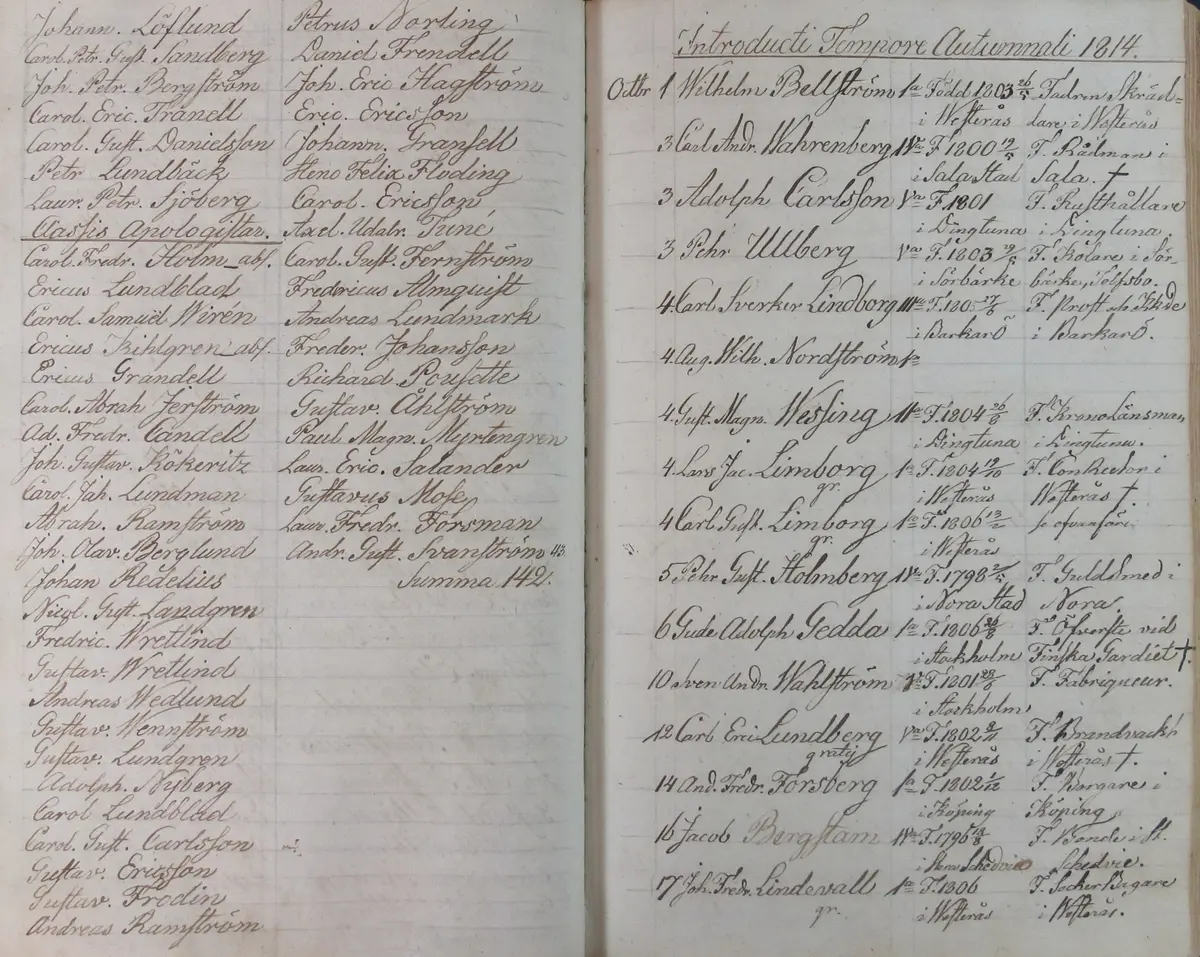 Johann. Löflund
Carol. Petr. Gust. Sandberg
Joh. Petr. Bergström
Carol. Eric. Tranell
Carol. Gust. Danielsson
Petr Lundbäck
Laur. Petr. Sjöberg
Classis Apologistar.
Carol. Fredr. Holm abs.
Ericus Lundblad
Carol. Samuel Wirén
Ericus Kihlgren abs.
Ericus Grandell
Carol. Abrah Jerström
Ad. Fredr. Candell
Joh. Gustav. Kökeritz
Carol. Joh. Lundman
Abrah. Ramström
Joh. Olav. Berglund
Johan Redelius
Nicol. Gust. Landgren
Fredric. Wretlind
Gustav. Wretlind
Andreas Wedlund
Gustav. Wennström
Gustav. Lundgren
Adolph. Nyberg
Carol Lundblad
Carol. Gust. Carlsson
Gustav. Ericsson
Gustav. Frodin
Andreas Ramström
Petrus Norling
Daniel Frendell
Joh. Eric Hagström
Eric. Ericsson
Johann. Gransell
Heno Felix Floding
Carol. Ericsson
Axel. Udalr. Tuné
Carol. Gust. Fernström
Fredericus Almquist
Andreas Lundmark
Freder. Johansson
Richard Pousette
Gustav. Åhlström
Paul. Magn. Myrtengren
Laur. Eric. Salander
Gustavus Mose
Laur. Fredr. Forsman
Andr. Gust. Svanström 43
Summa 142.
Introducti Tempore Autumnali 1814.
Octbr 1 Wilhelm Bellström 1a Född 1803 26/5 Fadren Skräd=
i Westerås dare i Westerås
3 Carl Andr. Wahrenberg IVa F. 1800 19/5 F. Rådman i
i Sala Stad Sala. †
3 Adolph Carlsson Va F. 1801 F. Rusthållare
i Dingtuna i Dingtuna.
3 Pehr Ullberg Va F. 1803 19/5 F. Kolare i Sör-
i Sörbärke bärke,
4. Carl Sverker Lindborg IIIa F. F. Prost
i Barkarö i Barkarö.
4. Aug. Wilh. Nordström 1a
4. Gust. Magn. Wesling IIa F. 1804 26/8 F. Kronolänsman
i Dingtuna i Dingtuna.
4. Lars Jac. Limborg 1a F. 1804 19/10 F. ConRector i
gr. i Westerås Westerås †.
4 Carl Gust. Limborg 1a F. 1806 13/12 se ofvanföre
gr. i Westerås
5 Pehr Gust. Holmberg IVa F. 1798 F. Guldsmed i
i Nora Stad Nora.
6 Gude Adolph Gedda 1a F. 1806 26/8 F. Öfverste vid
i Stockholm Finska Gardiet †.
10 Sven Andr. Wahlström F. 1801 F. Fabriqueur.
i Stockholm
12 Carl Eric Lundberg Va F. 1802 9/11 F. Brandvackt
gratis i Westerås i Westerås †.
14 And. Fredr. Forsberg 1a F. 1802 1/12 F. Borgare i
i Köping Köping
16 Jacob Bergstam IVa F. 1796 F. Bonde i St.
i Stora Schedvie Schedvie.
17 Joh. Fredr. Lindevall 1a F. 1806 F. SockerBagare
gr. i Westerås i Westerås.